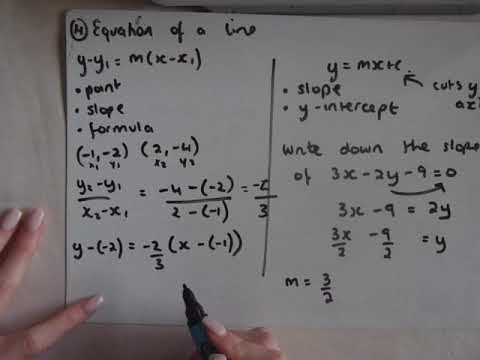 ④ Equation of a line
y-y₁ = m(x-x₁)
• point
• slope
• formula
(-1,-2) (2,-4)
x₁ y₁ x₂ y₂
y₂-y₁ / x₂-x₁ = -4-(-2) / 2-(-1) = -2/3
y-(-2) = -2/3 (x-(-1))
y = mx+c
• slope
• y-intercept
cuts y
write down the slope
of 3x-2y-9=0
3x-9 = 2y
3x/2 -9/2 = y
m = 3/2